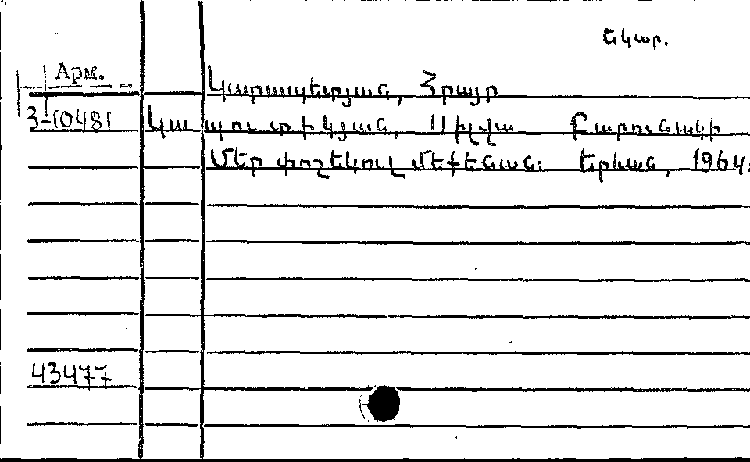 նկար.
Арм.
Կարապետյան, Հրայր
3-10481 Կապուտիկյան, Սիլվա Բարունակի
Մեր փոշեկուլ մեքենան: Երևան, 1964:
43477